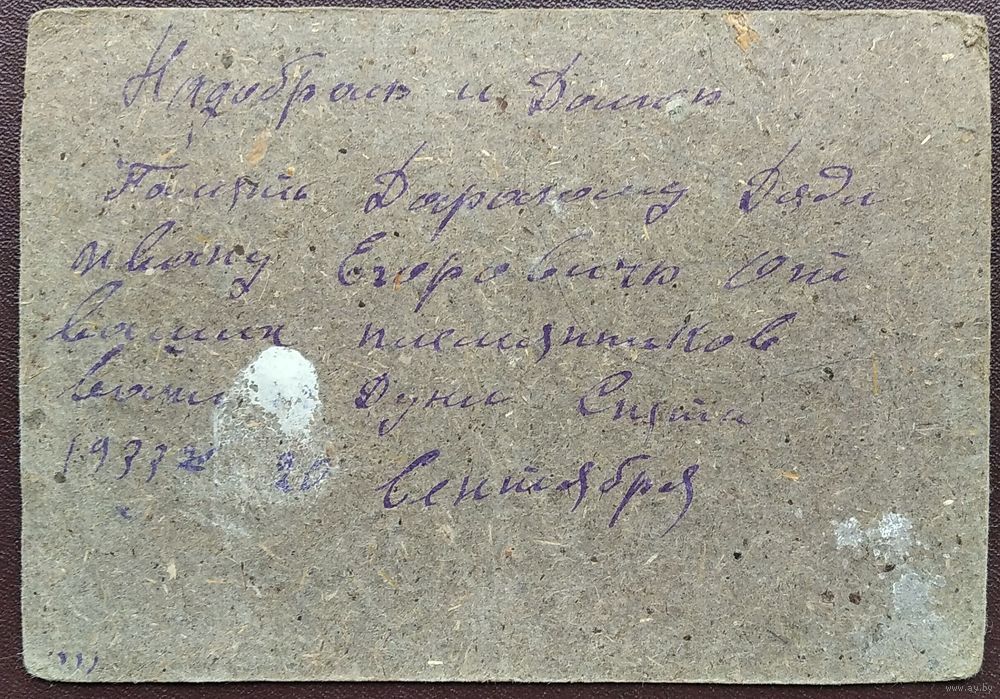 Надобраю и Долгою
Память Дарагому Дяди
Ивану Егоровичю От
ваших племянников
вани Дуни Снята
1933 г 20 Сентября
www.ay.by